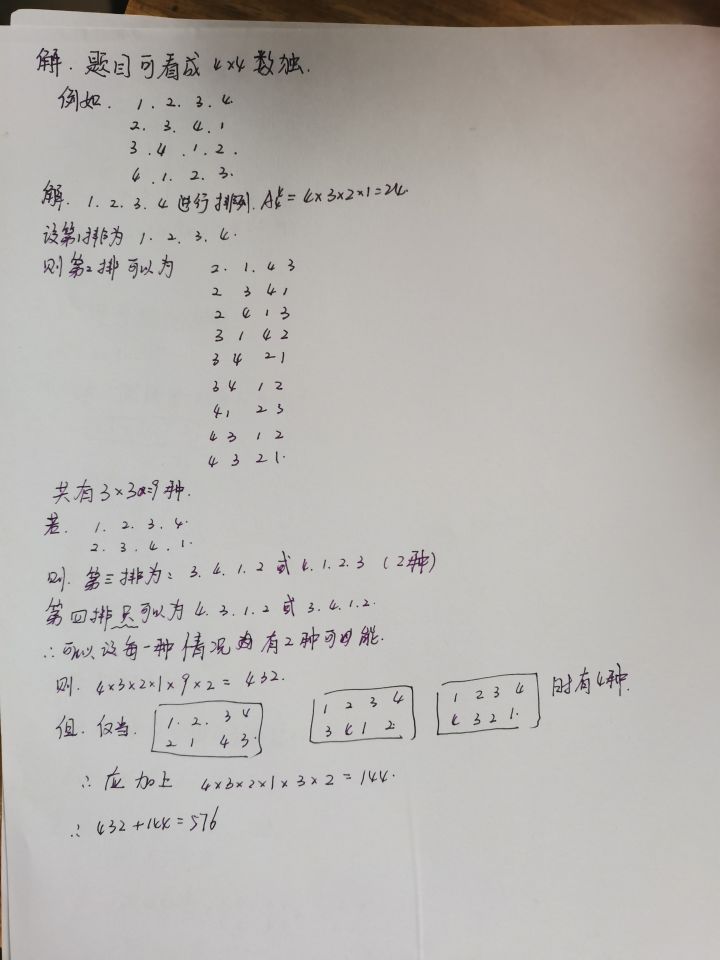 解. 题目可看成 4×4 数独.
例如. 1. 2. 3. 4.
2. 3. 4. 1
3. 4. 1. 2.
4. 1. 2. 3.
解. 1. 2. 3. 4 进行排列. A⁴₄ = 4×3×2×1=24.
设第1排为 1. 2. 3. 4.
则第2排可以为 2. 1. 4 3
2 3 4 1
2 4 1 3
3 1 4 2
3 4 2 1
3 4 1 2
4 1 2 3
4 3 1 2
4 3 2 1.
共有 3×3=9 种.
若. 1. 2. 3. 4.
2. 3. 4. 1.
则. 第三排为: 3. 4. 1. 2 或 4. 1. 2. 3 (2种)
第四排只可以为 4. 3. 1. 2 或 3. 4. 1. 2.
∴可以设每一种情况均有2种可能.
则. 4×3×2×1×9×2 = 432.
但. 仅当. 1. 2. 3 4 1 2 3 4 1 2 3 4 时有4种.
2 1 4 3. 3 4 1 2. 4 3 2 1.
∴应加上 4×3×2×1×3×2=144.
∴ 432+144=576